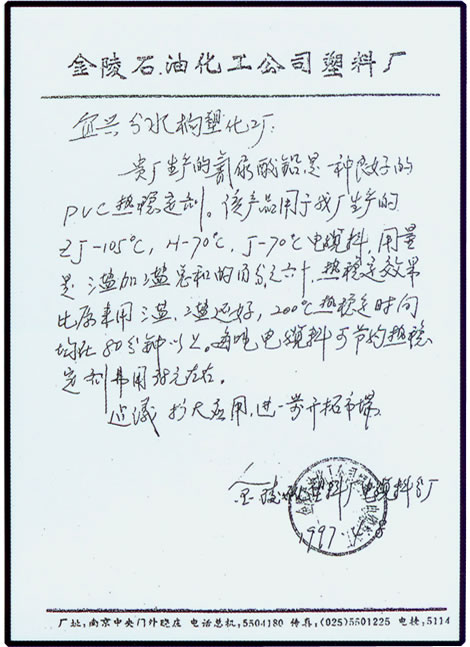 金陵石油化工公司塑料厂
宜兴分水 塑化工厂:
贵厂生产的氰尿酸铅是一种良好的
PVC热稳定剂。该产品用于我厂生产的
ZJ-105℃, H-70℃, J-70℃电缆料,用量
是三盐加二盐总和的百分之六十,热稳定效果
比原来用三盐、二盐还好,200℃热稳定时间
均在80分钟以上。每吨电缆料可节约热稳
定剂费用 元左右。
建议扩大应用,进一步开拓市场。
金陵 塑料厂电缆料分厂
1997.
厂址,南京中央门外晓庄 电话总机,5504180 传真,(025)5501225 电挂,5114